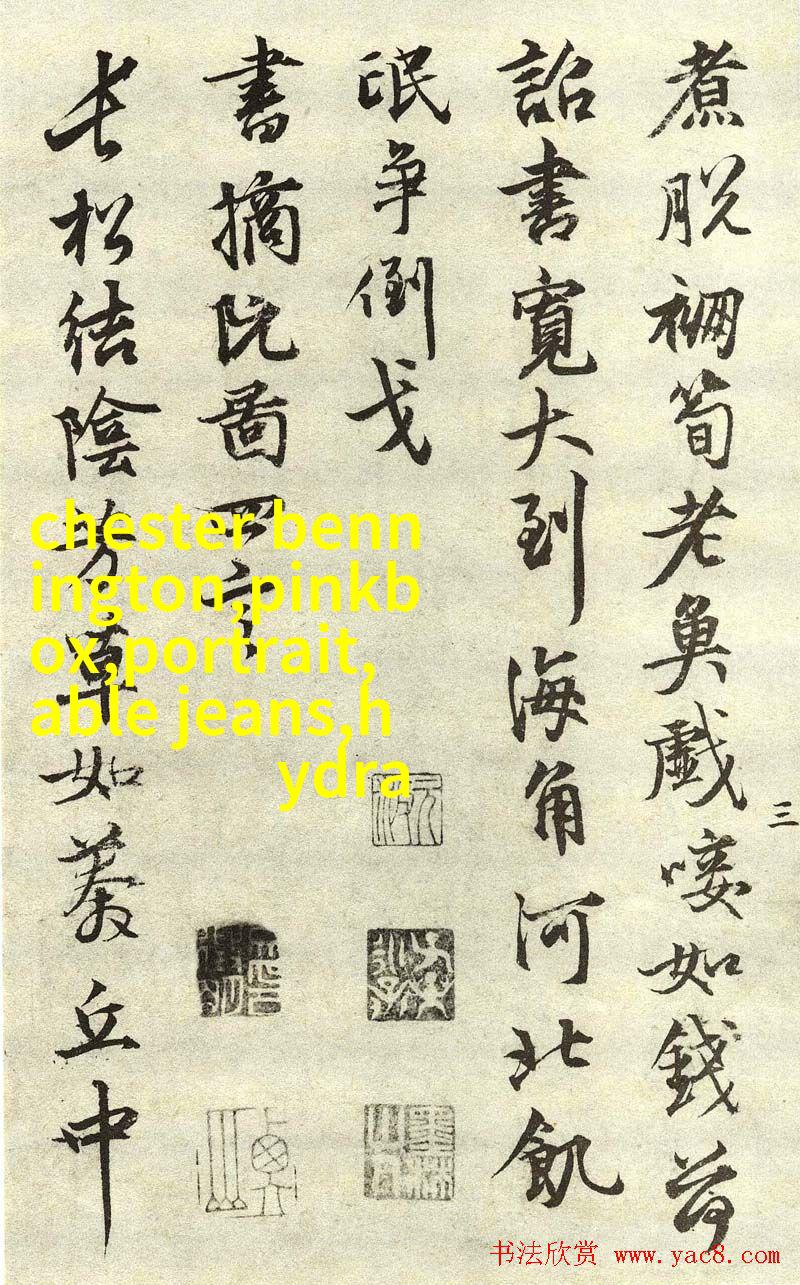 煮脱筍老魚戲唼如錢荷
詔書寬大到海角河北飢
氓争倒戈
書摘阮圖四言
長松結陰芳草如丘中
三
chester benn
ington,pinkb
ox,portrait,
able jeans,h
ydra
书法欣赏 www.yac8.com